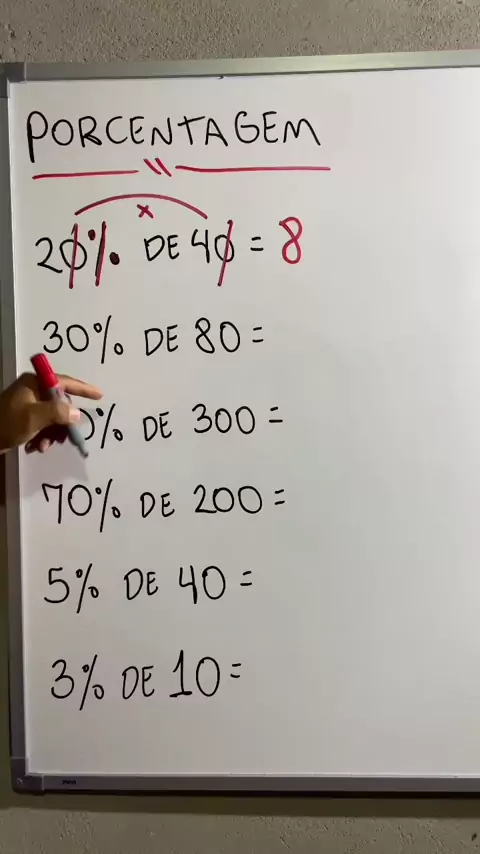 PORCENTAGEM
20% DE 40 = 8
30% DE 80 =
0% DE 300 =
70% DE 200 =
5% DE 40 =
3% DE 10 =